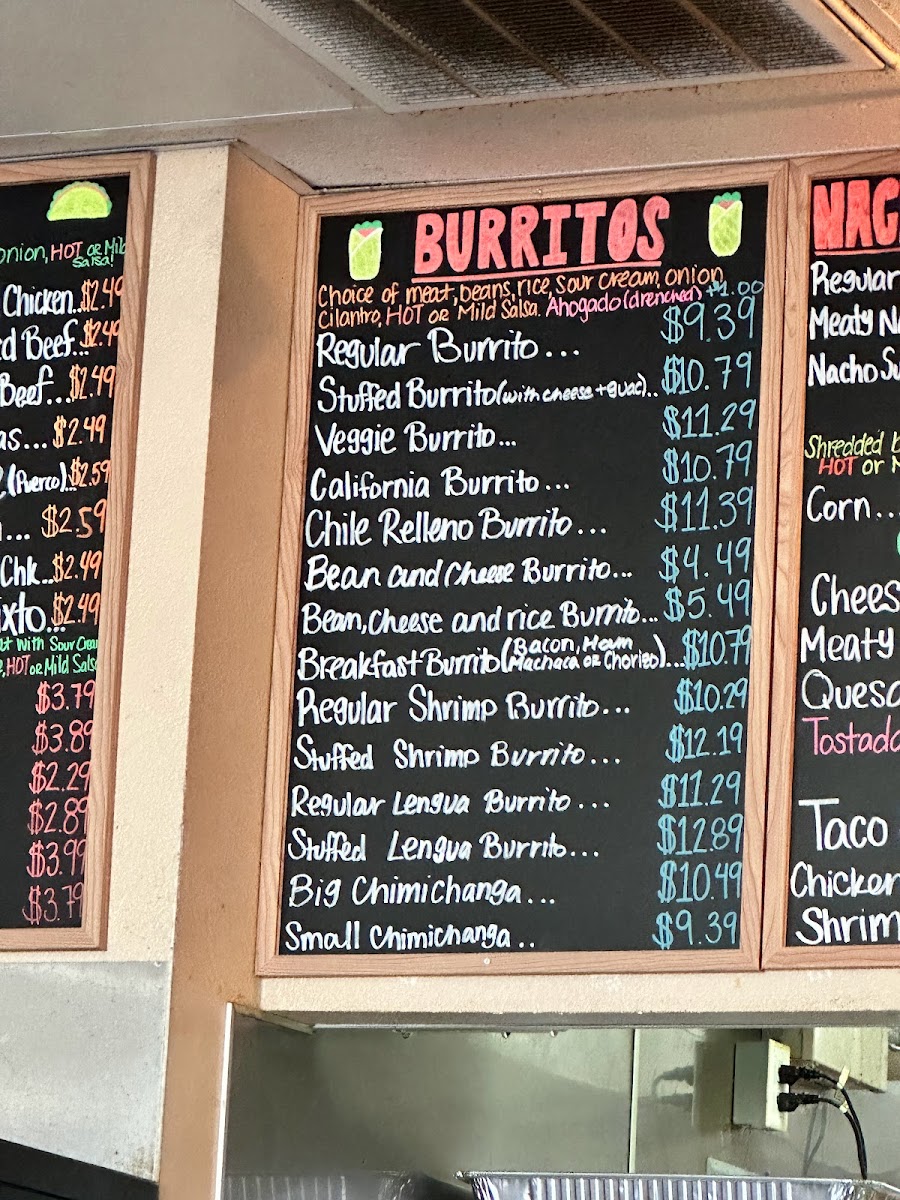 onion, HOT or Mild
Salsa!
Chicken..$2.49
Beef...$2.49
Beef...$2.49
...$2.49
(Puerco)..$2.59
... $2.59
Chk..$2.49
$2.49
with Sour Cream
HOT or Mild Salsa
$3.79
$3.89
$2.29
$2.89
$3.99
$3.79
BURRITOS
Choice of meat, beans, rice, sour cream, onion,
Cilantro, HOT or Mild Salsa. Ahogado (drenched) +$1.00
Regular Burrito... $9.39
Stuffed Burrito (with cheese + guac).. $10.79
Veggie Burrito... $11.29
California Burrito... $10.79
Chile Relleno Burrito... $11.39
Bean and Cheese Burrito... $4.49
Bean, Cheese and rice Burrito... $5.49
Breakfast Burrito (Bacon, Ham Machaca or Chorizo)...$10.79
Regular Shrimp Burrito... $10.29
Stuffed Shrimp Burrito... $12.19
Regular Lengua Burrito... $11.29
Stuffed Lengua Burrito... $12.89
Big Chimichanga... $10.49
Small Chimichanga.. $9.39
Regular
Meaty
Nacho
Shredded
HOT or
Corn...
Meaty
Taco